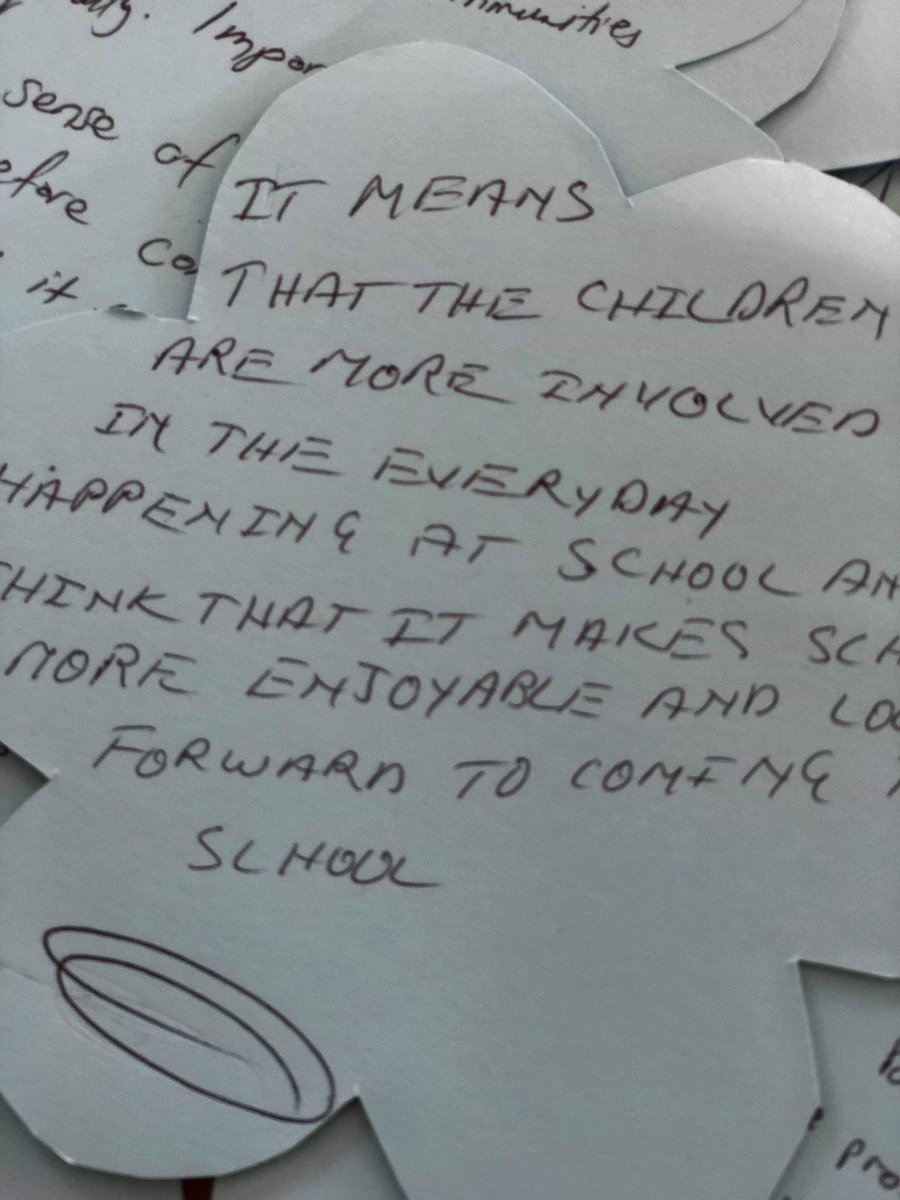 Impor
mmunities
sense of
efore co
it
IT MEANS
THAT THE CHILDREN
ARE MORE INVOLVED
IN THE EVERYDAY
HAPPENING AT SCHOOL AN
THINK THAT IT MAKES SCH
MORE ENJOYABLE AND LOO
FORWARD TO COMING T
SCHOOL
pro